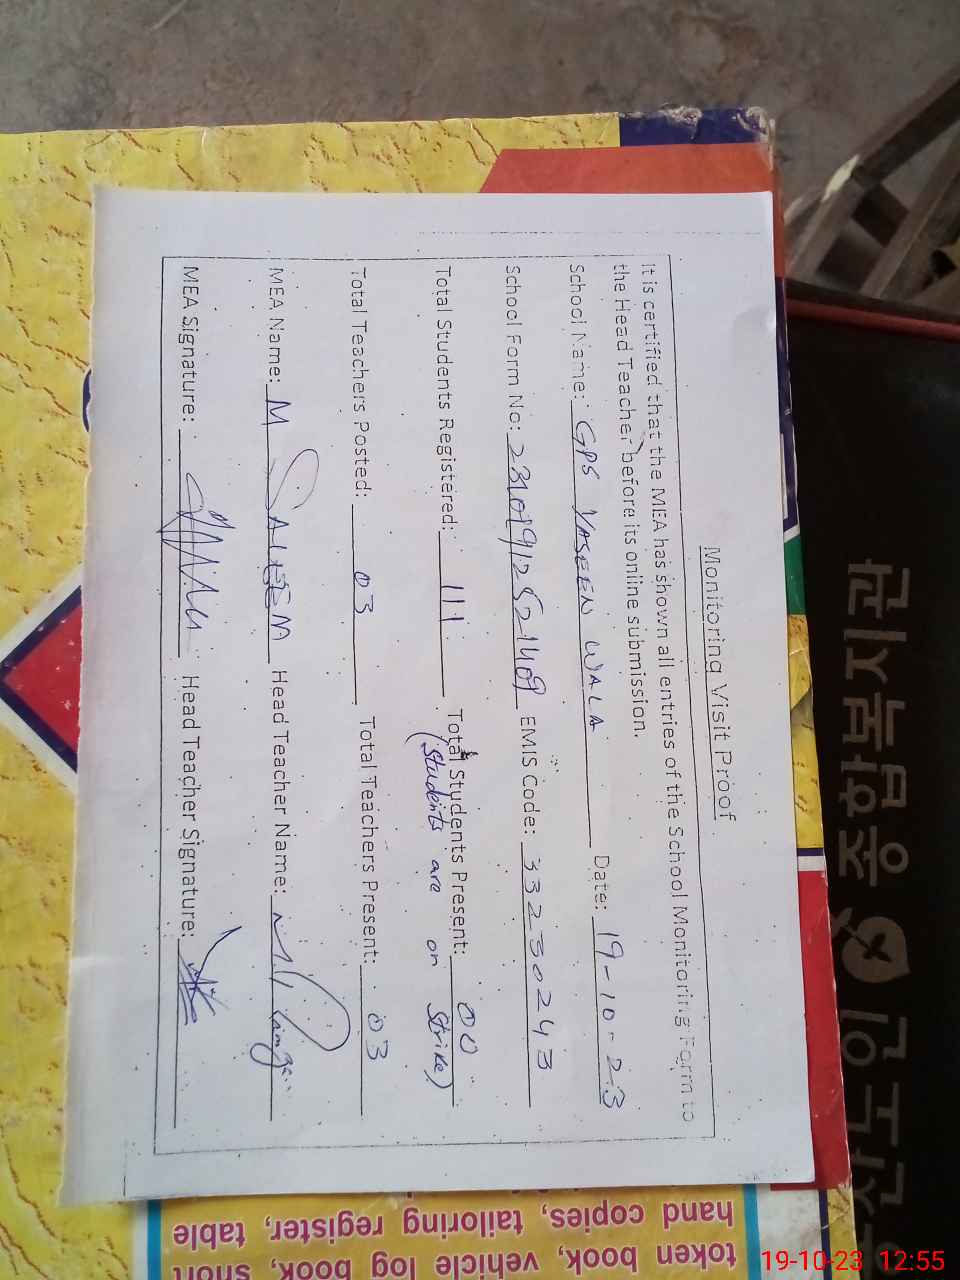 Monitoring Visit Proof
It is certified that the MEA has shown all entries of the School Monitoring Form to
the Head Teacher before its online submission.
School Name: GPS YASEEN WALA Date: 19-10-23
School Form No: EMIS Code: 33230243
Total Students Registered: 111 Total Students Present: 00
(Students are on Strike)
Total Teachers Posted: 03 Total Teachers Present: 03
MEA Name: M SALEEM Head Teacher Name:
MEA Signature: Head Teacher Signature:
token book, vehicle log book, short
hand copies, tailoring register, table
노인종합복지관
19-10-23 12:55